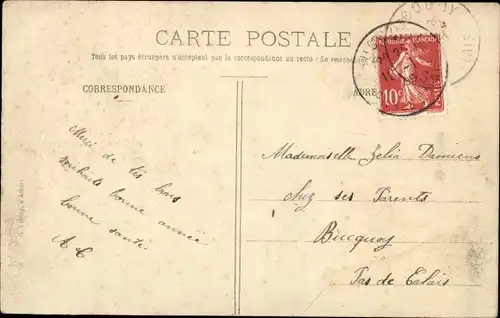 CARTE POSTALE
Tous les pays étrangers n'acceptent pas la correspondance au recto : Se renseigner
CORRESPONDANCE
ADRE
REPUBLIQUE FRANÇAISE
10c
Merci de tes bons
souhaits bonne année
bonne santé
A C
Mademoiselle Zelia Damiens
chez ses Parents
Bucquoy
Pas de Calais